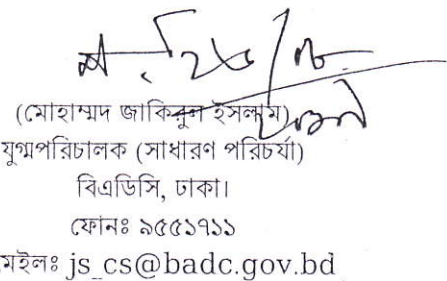 (মোহাম্মদ জাকিরুল ইসলাম)
যুগ্মপরিচালক (সাধারণ পরিচর্যা)
বিএডিসি, ঢাকা।
ফোনঃ ৯৫৫১৭১১
মেইলঃ js_cs@badc.gov.bd